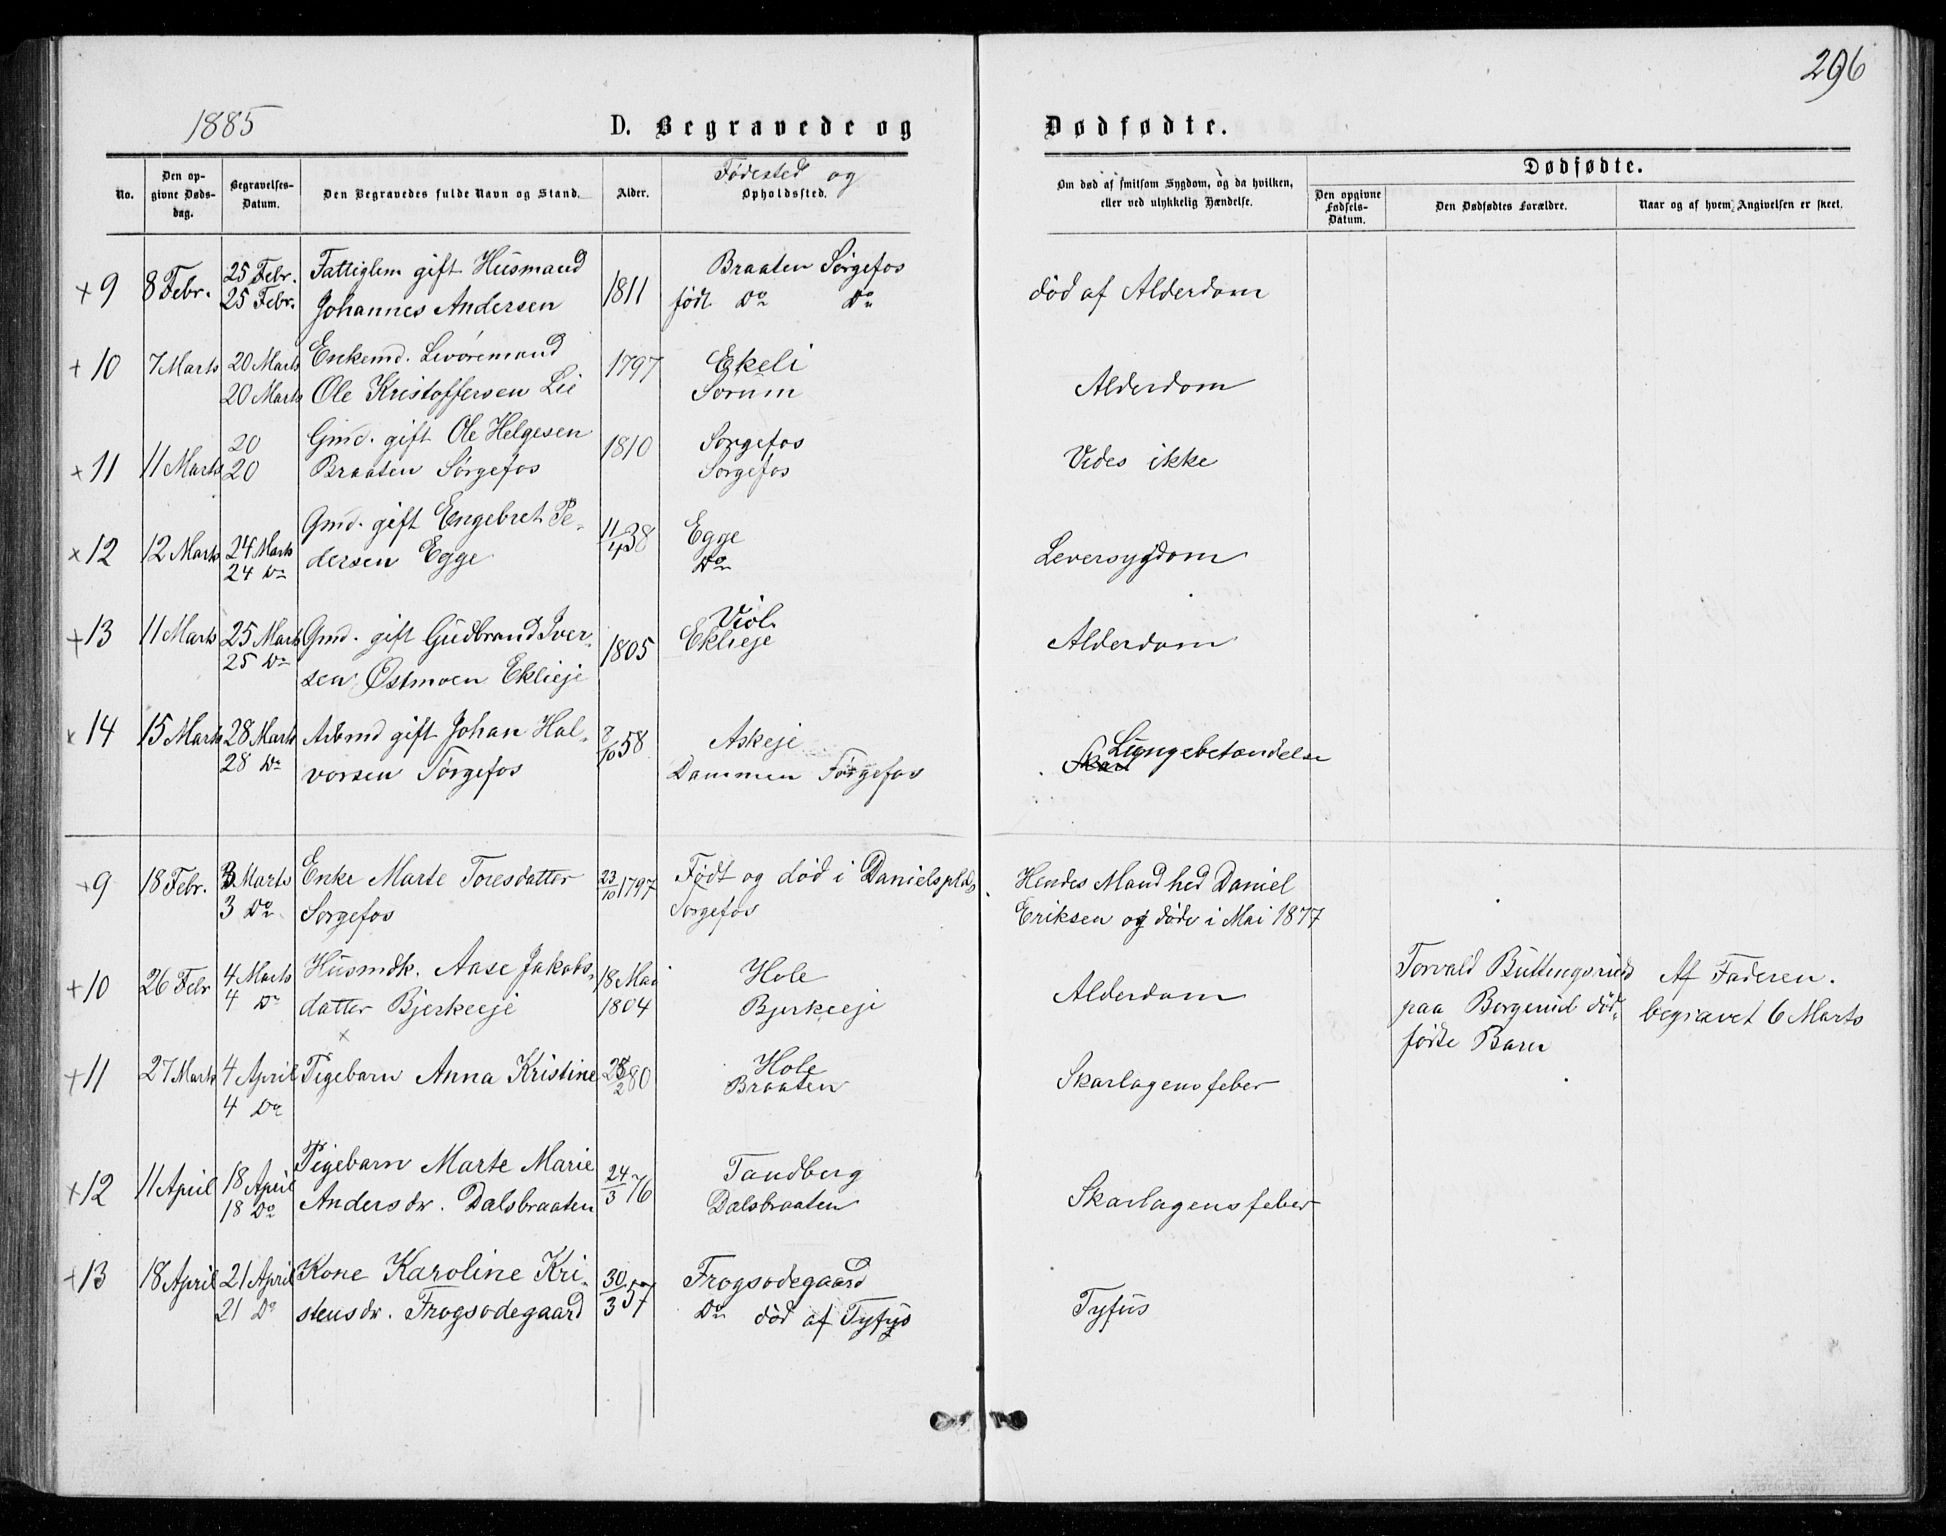 296
1885
D. Begravede og Dødfødte.
No.
Den opgivne Dødsdag.
Begravelses-Datum.
Den Begravedes fulde Navn og Stand.
Alder.
Fødested og
Opholdssted.
Om død af smitsom Sygdom, og da hvilken,
eller ved ulykkelig Hændelse.
Dødfødte.
Den opgivne Fødsels-Datum.
Den Dødfødtes Forældre.
Naar og af hvem Angivelsen er skeet.
+ 9 8 Febr. 25 Febr. Fattiglem gift Husmand 1811 Braaten Sørgefos død af Alderdom
25 Febr. Johannes Andersen født Do Do
+ 10 7 Marts 20 Marts Enkemd. 1797 Ekeli Alderdom
20 Marts Ole Kristoffersen Lie Sorum
x 11 11 Marts 20 Gmd. gift Ole Helgesen 1810 Sorgefos Vides ikke
20 Braaten Sørgefos Sorgefos
x 12 12 Marts 24 Marts Gmd. gift Engebret Pe- 11/4 38 Egge Leversygdom
24 Do dersen Egge Do
+ 13 11 Marts 25 Marts Gmd. gift Gudbrand Iver- 1805 Viol. Alderdom
25 Do sen Østmoen Eklieje Eklieje
x 14 15 Marts 28 Marts Arbmd gift Johan Hal- 8/10 58 Askeje Lungebetændelse
28 Do vorsen Tørgefos Dammen Tørgefos
+ 9 18 Febr. 3 Marts Enke Marte Toresdatter 23/10 1797 Født og død i Danielsplds. Hendes Mand hed Daniel
3 Do Sorgefos Sorgefos Eriksen og døde i Mai 1877
+ 10 26 Febr 4 Marts Husmdk. Aase Jakobs- 18 Mai Hole Alderdom Torvald Buttingsrud Af Faderen.
4 Do datter Bjerkeeje 1804 Bjerkeeje paa Borgerud død- begravet 6 Marts
x
fødte Barn
+ 11 27 Marts 4 April Pigebarn Anna Kristine 28/2 80 Hole Skarlagensfeber
4 Do Braaten
+ 12 11 April 18 April Pigebarn Marte Marie 24/3 76 Tandberg Skarlagensfeber
18 Do Andersdr. Dalsbraaten Dalsbraaten
+ 13 18 April 21 April Kone Karoline Kri- 30/3 57 Frogsødegaard Tyfus
21 Do stensdr. Frogsødegaard Do død af Tyfus